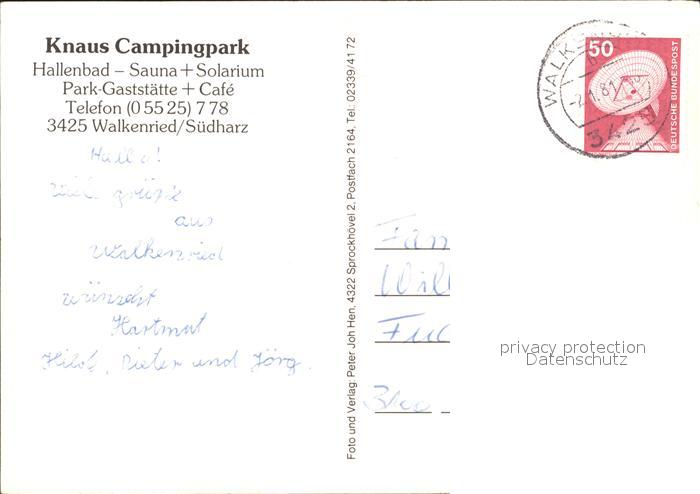 Knaus Campingpark
Hallenbad – Sauna + Solarium
Park-Gaststätte + Café
Telefon (0 55 25) 7 78
3425 Walkenried/Südharz
Hallo!
viele grüße
aus
Walkenried
wünscht
Hartmut
Hilde, Dieter und Jörg.
Foto und Verlag: Peter Joh Hen, 4322 Sprockhövel 2, Postfach 2164, Tel. 02339/41 72
50
DEUTSCHE BUNDESPOST
3425
Fam
Will
privacy protection
Datenschutz